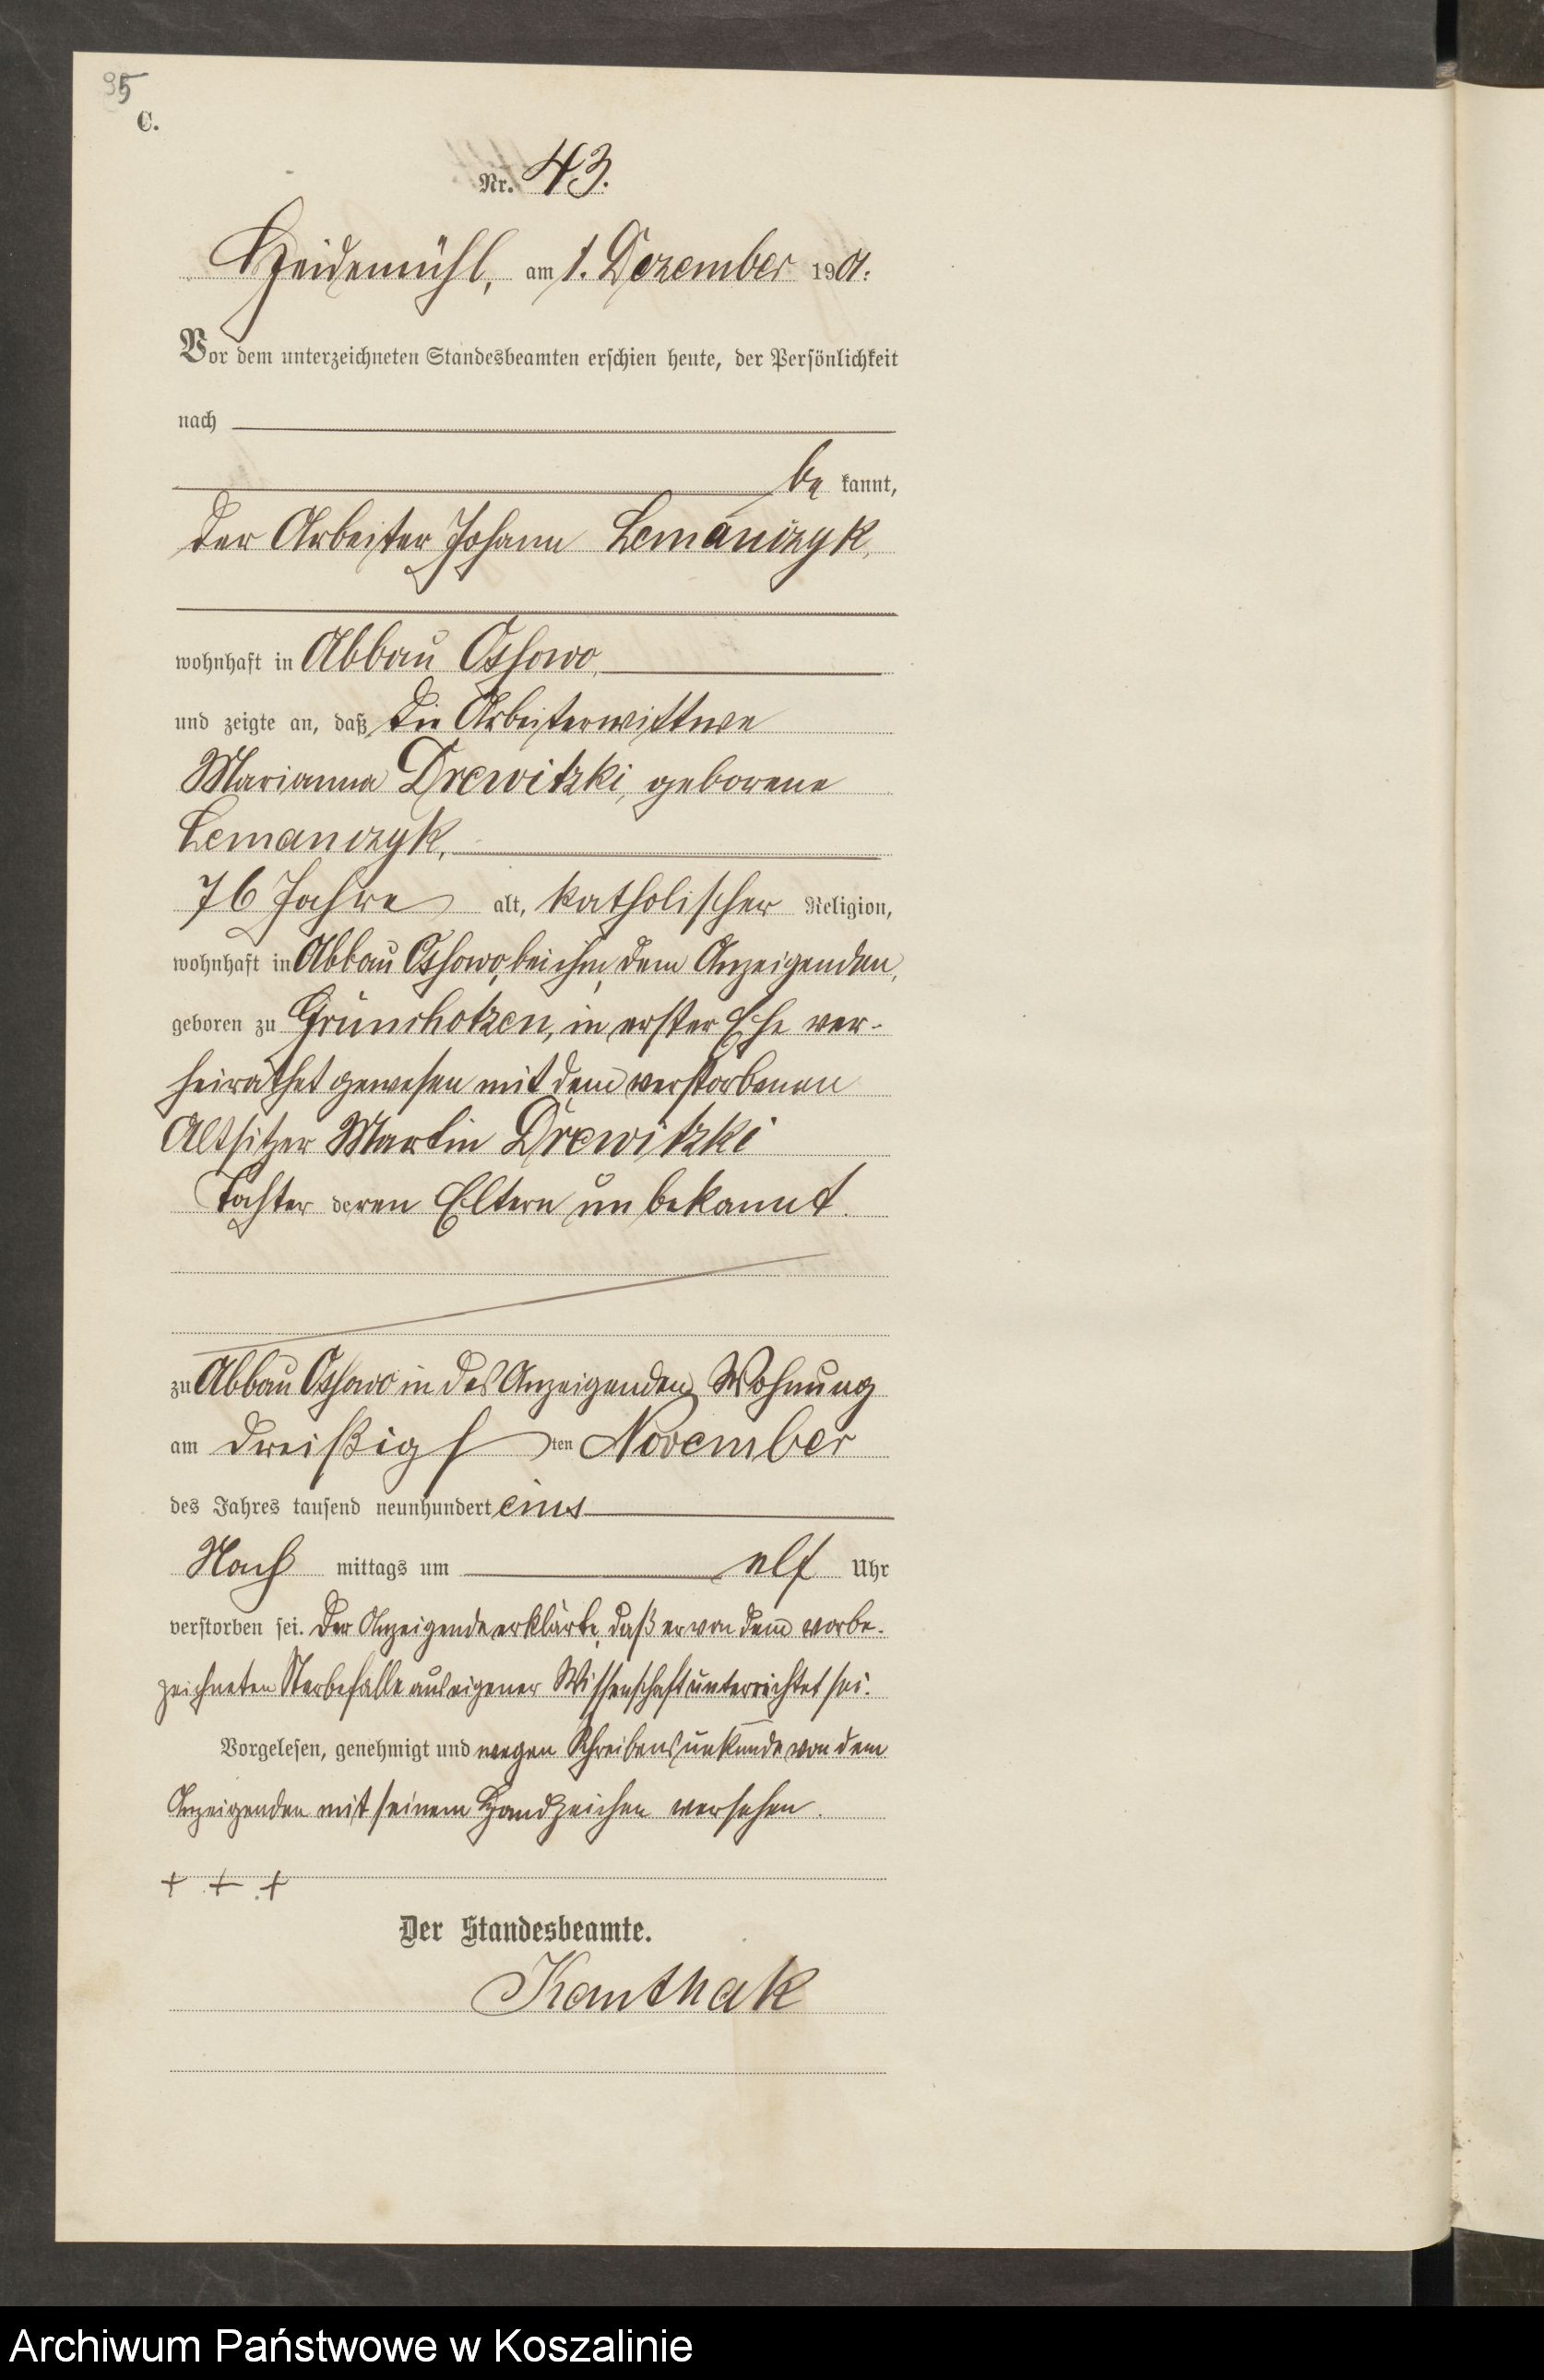 95
C.
Nr. 43.
Heidemühl, am 1. Dezember 1901.
Vor dem unterzeichneten Standesbeamten erschien heute, der Persönlichkeit
nach
be kannt,
der Arbeiter Johann Lemańczyk,
wohnhaft in Abbau Ossowo,
und zeigte an, daß die Arbeiterwittwe
Marianna Drewitzki, geborene
Lemanczyk,
76 Jahre alt, katholischer Religion,
wohnhaft in Abbau Ossowo, bei ihm, dem Anzeigenden,
geboren zu Grünchotzen, in erster Ehe ver-
heirathet gewesen mit dem verstorbenen
Altsitzer Martin Drewitzki
Tochter deren Eltern unbekannt.
zu Abbau Ossowo in des Anzeigenden Wohnung
am dreißigsten November
des Jahres tausend neunhundert eins
Nach mittags um elf Uhr
verstorben sei. Der Anzeigende erklärte, daß er von dem vorbe-
zeichneten Sterbefalle aus eigener Wissenschaft unterrichtet sei.
Vorgelesen, genehmigt und wegen Schreibensunkunde von dem
Anzeigenden mit seinem Handzeichen versehen.
+ + +
Der Standesbeamte.
Kanthak
Archiwum Państwowe w Koszalinie